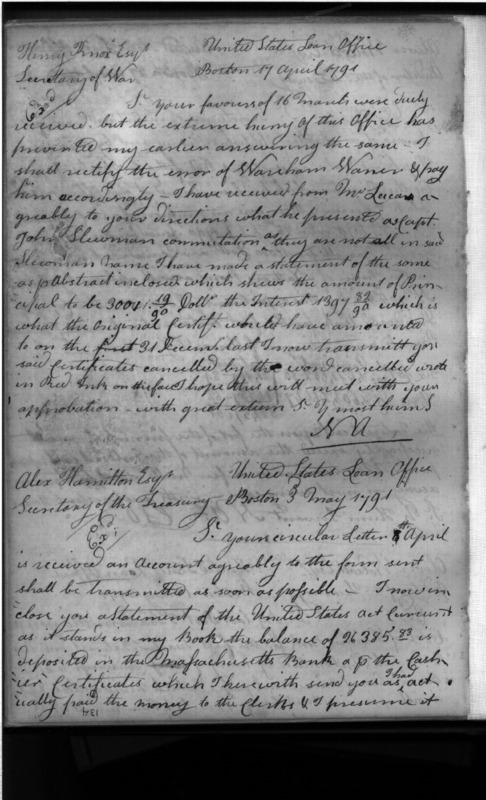 Henry Knox Esqr United States Loan Office
Secretary of War Boston 17 April 1791
Exd
Sr your favours of 16 March were duly
received. but the extreme hurry of this Office has
prevented my earlier answering the same - I
shall rectify the error of Wareham Warner & pay
him accordingly - I have received from Mr Lucas a-
greably to your directions what he presented as Capt
John Stewman commutation as they are not all in said
Stewman name I have made a statement of the same
as p Abstract inclosed which shews the amount of Prin-
cipal to be 3001. 19/90 Dollrs the Interest 1397 82/90 which is
what the Original Certifs. would have amounted
to on the first 31 Decembr last I now transmitt you
said Certificates cancelled by the word cancelled wrote
in Red Ink on the face I hope this will meet with your
approbation - with great esteem Sr yr most hum S
NA
Alex Hamilton Esqr United States Loan Office
Secretary of the Treasury Boston 3 May 1791
Exd
Sr your circular Letter 8th April
is received an account agreably to the form sent
shall be transmitted as soon as possible - I now in
close you a Statement of the United States act Current
as it stands in my Book the balance of 26385. 83 is
deposited in the Massachusetts Bank a p the Cash-
ier Certificates which I herewith send you as I had act
ually paid the money to the Clerks & I presume it
134